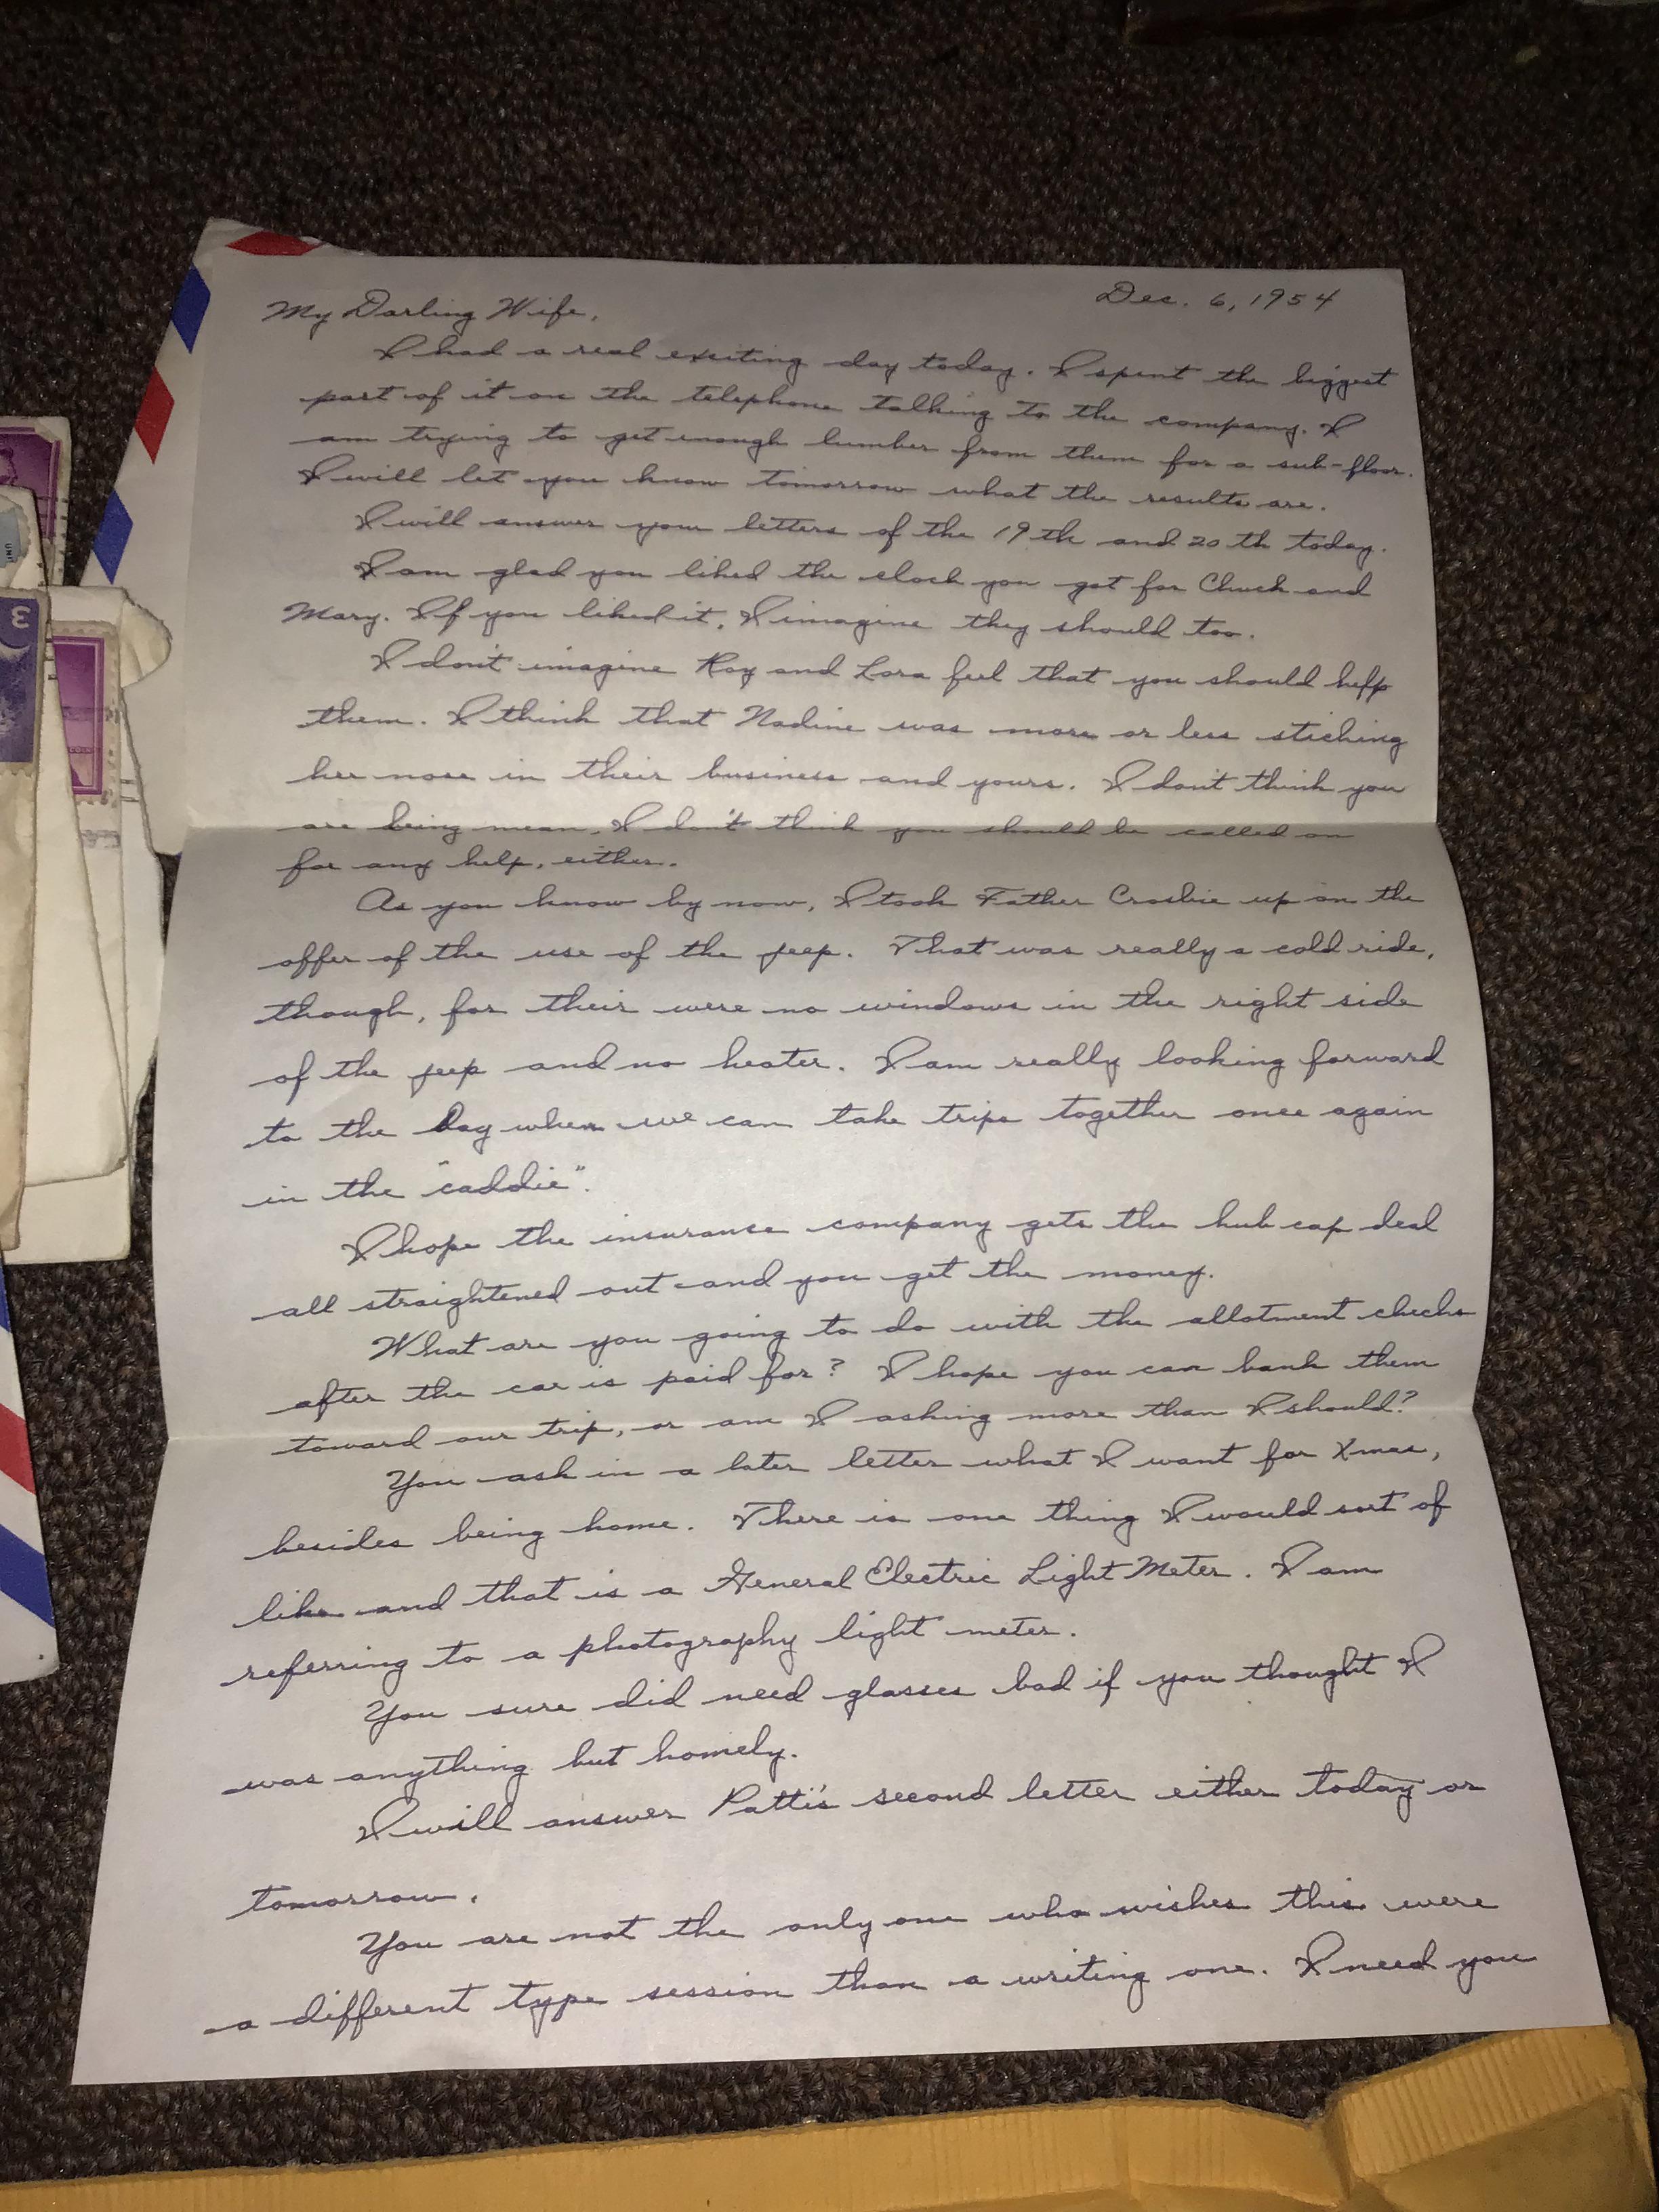 Dec. 6, 1954
My Darling Wife,
I had a real exciting day today. I spent the biggest
part of it on the telephone talking to the company. I
am trying to get enough lumber from them for a sub-floor.
I will let you know tomorrow what the results are.
I will answer your letters of the 19th and 20th today.
I am glad you liked the clock you got for Chuck and
Mary. If you liked it, I imagine they should too.
I don't imagine Roy and Lora feel that you should help
them. I think that Nadine was more or less sticking
her nose in their business and yours. I don't think you
are being mean. I don't think you should be called on
for any help, either.
As you know by now, I took Father Crosbie up on the
offer of the use of the jeep. That was really a cold ride,
though, for their were no windows in the right side
of the jeep and no heater. I am really looking forward
to the day when we can take trips together once again
in the "caddie".
I hope the insurance company gets the hub cap deal
all straightened out and you get the money.
What are you going to do with the allotment checks
after the car is paid for? I hope you can bank them
toward our trip, or am I asking more than I should?
You ask in a later letter what I want for Xmas,
besides being home. There is one thing I would sort of
like and that is a General Electric Light Meter. I am
referring to a photography light meter.
You sure did need glasses bad if you thought I
was anything but homely.
I will answer Patti's second letter either today or
tomorrow.
You are not the only one who wishes this were
a different type session than a writing one. I need you
3